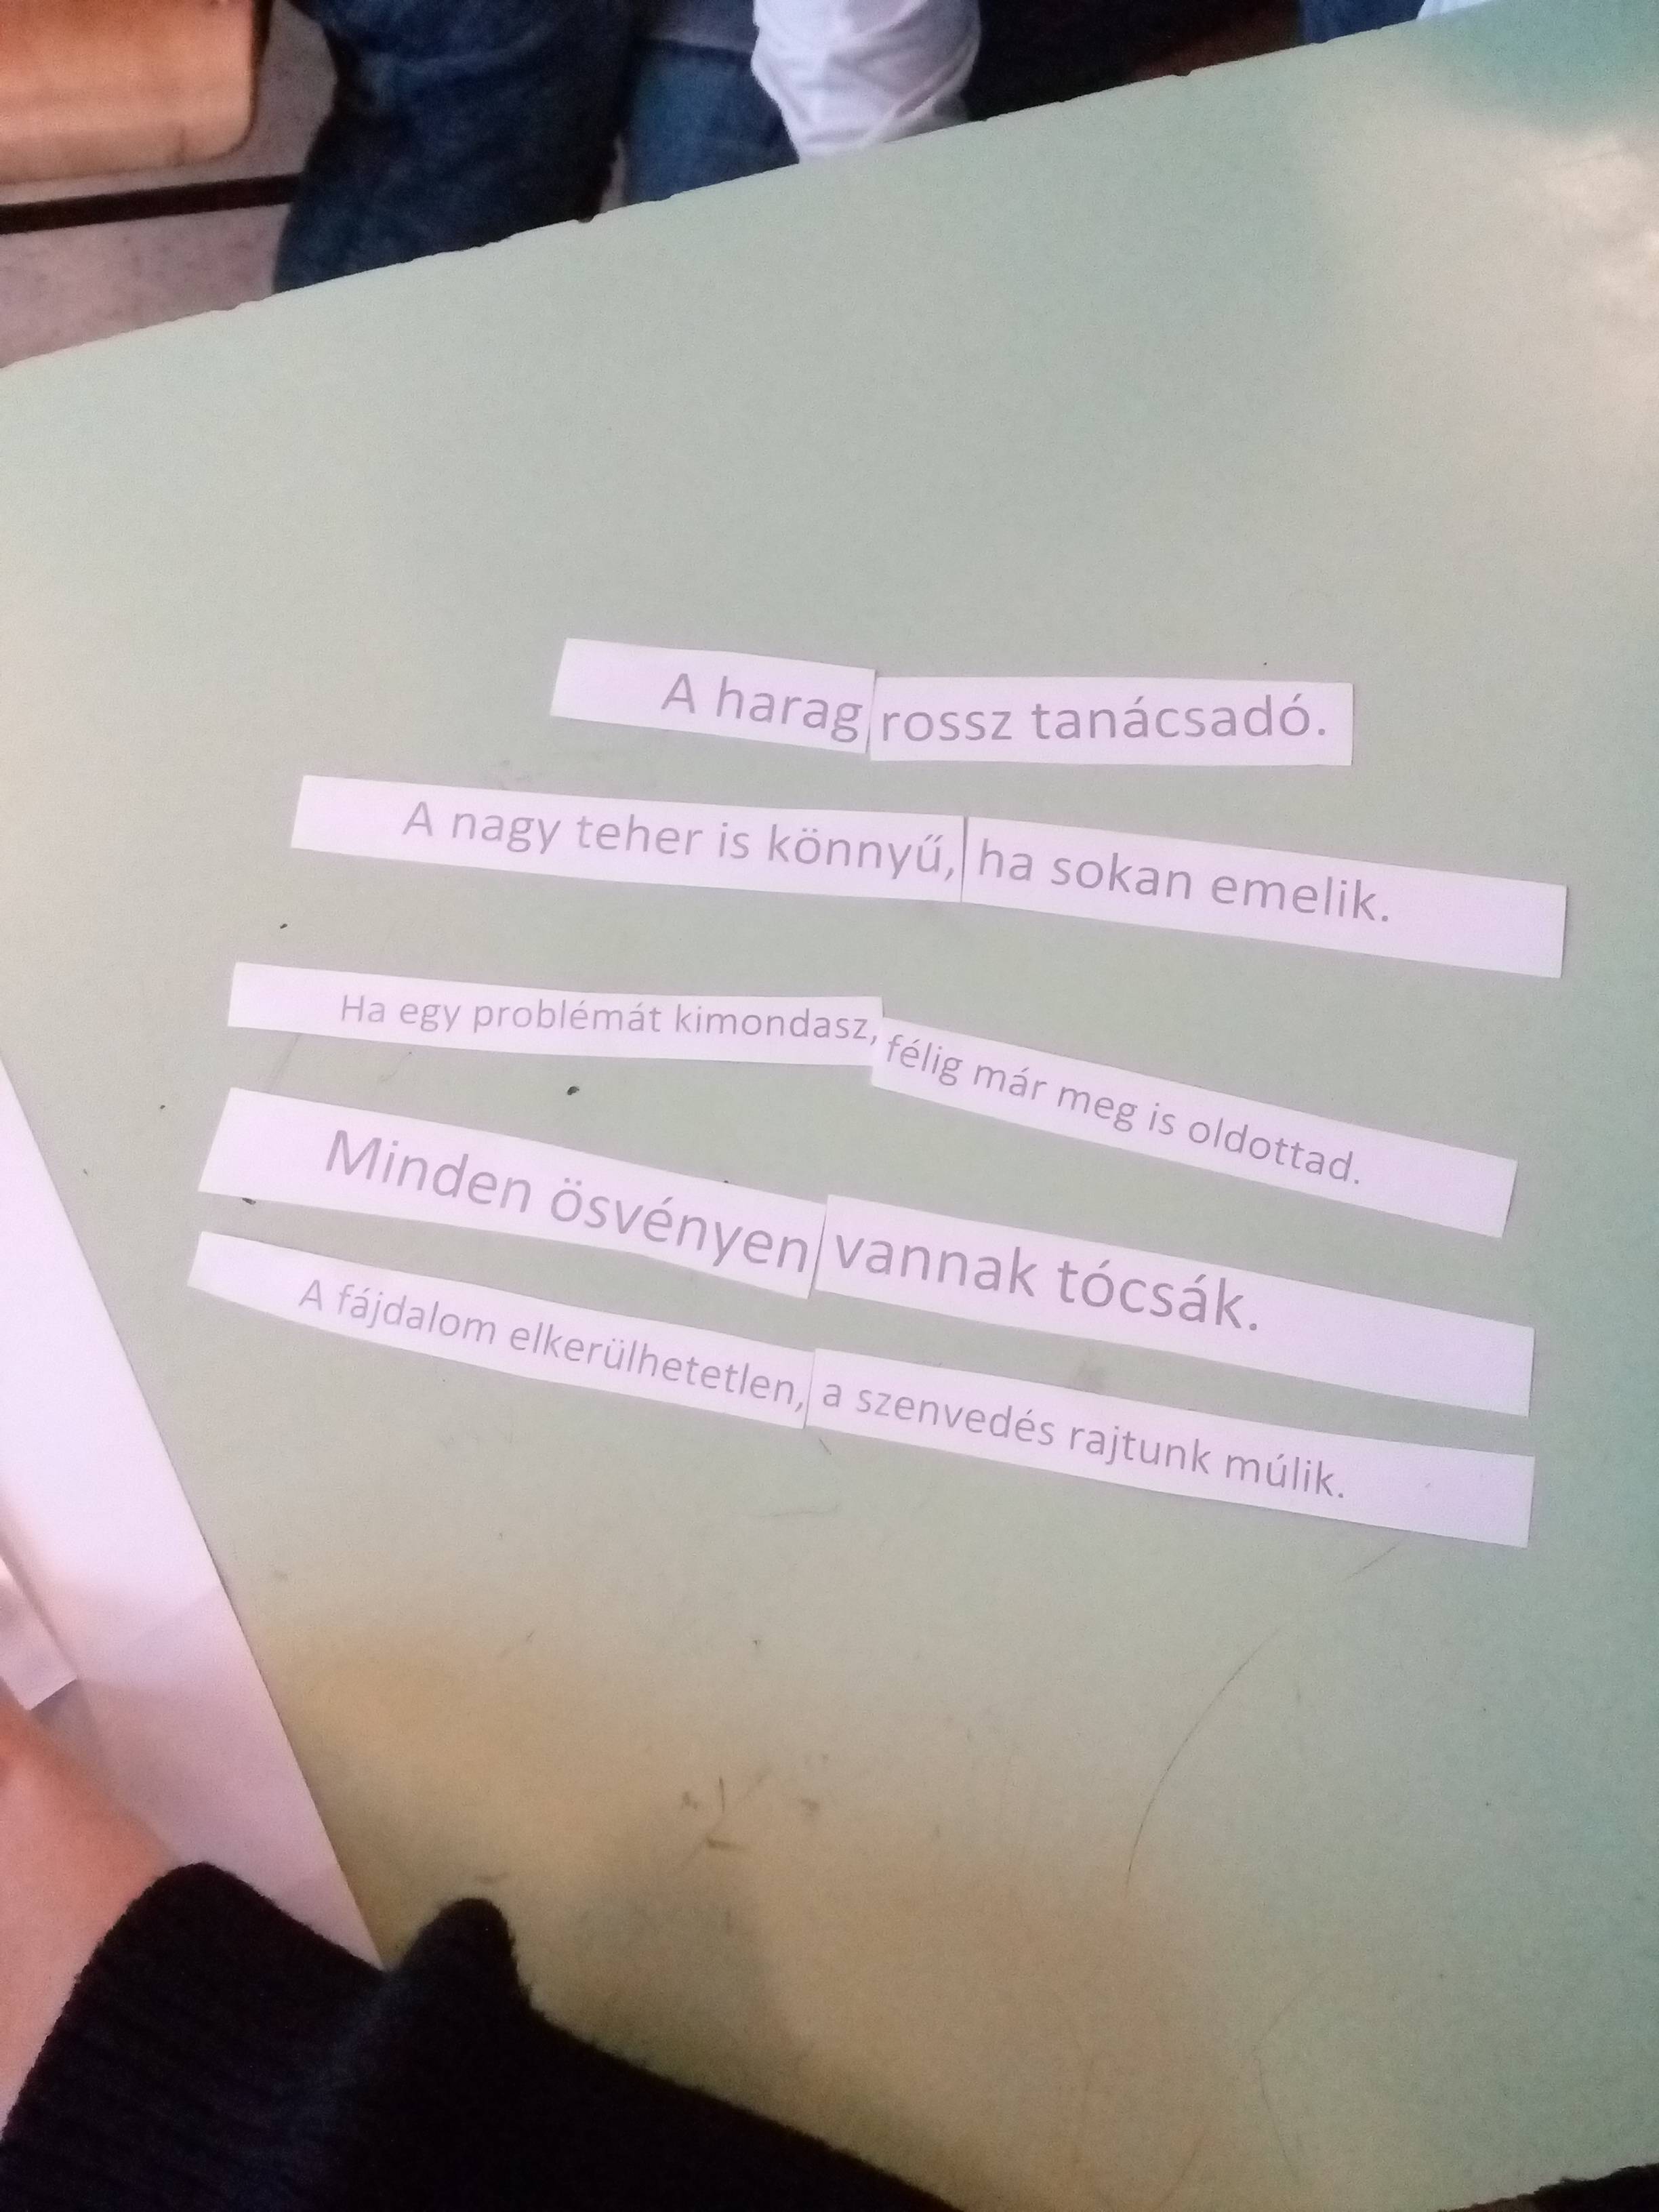 A harag rossz tanácsadó.
A nagy teher is könnyű, ha sokan emelik.
Ha egy problémát kimondasz, félig már meg is oldottad.
Minden ösvényen vannak tócsák.
A fájdalom elkerülhetetlen, a szenvedés rajtunk múlik.